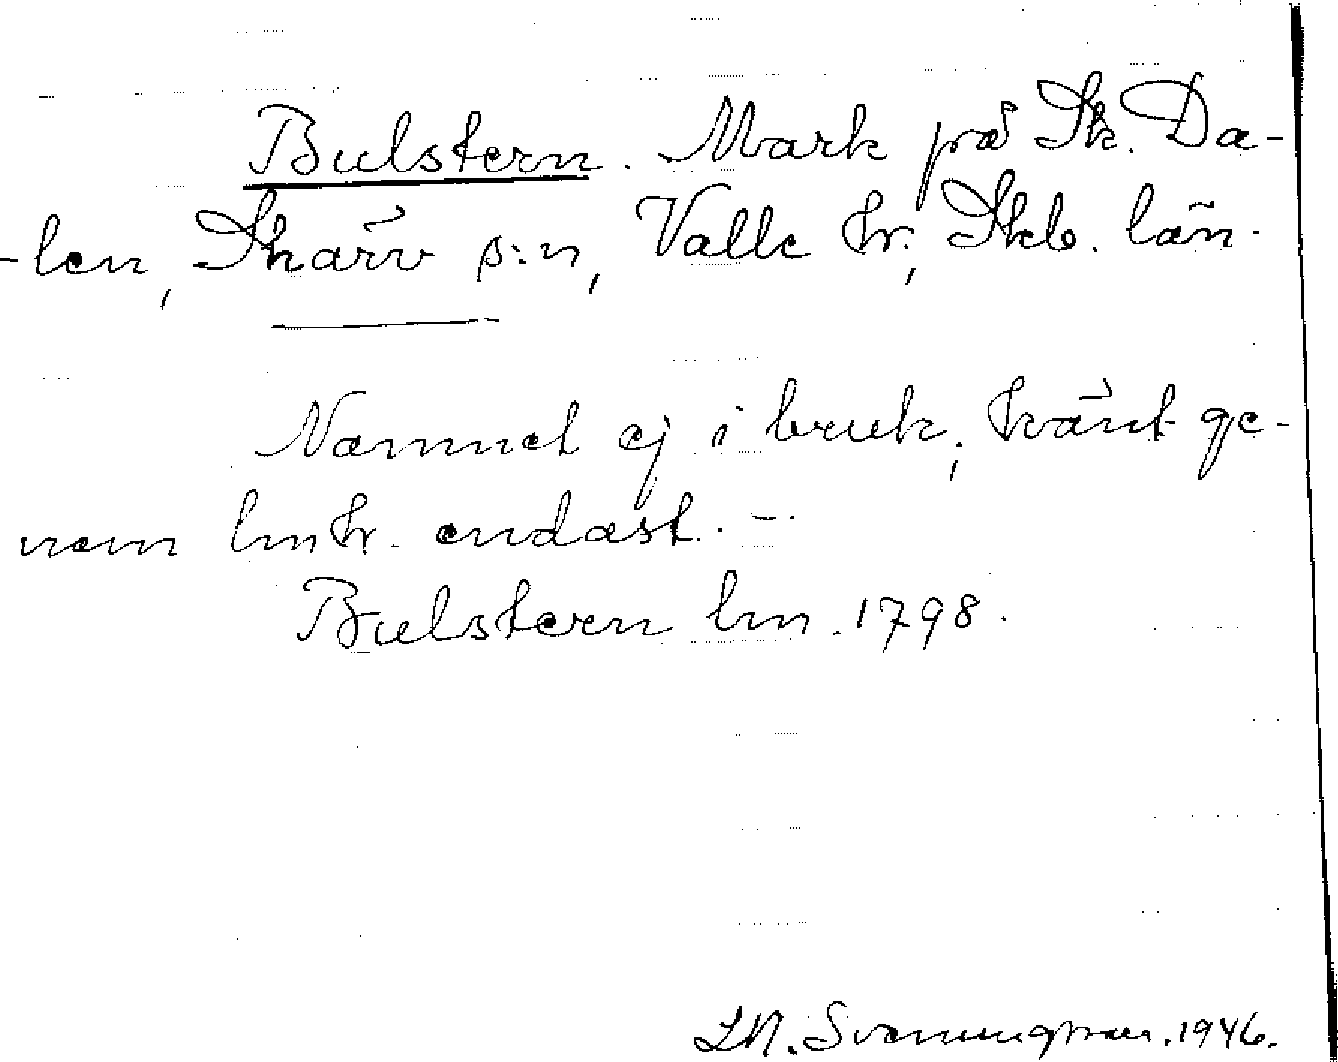 Bulstern. Mark på St. Da-
-len, Skärv s:n, Valle hr, Skb. län.
Namnet ej i bruk, känt ge-
nom lmhr. endast. -
Bulstern lm. 1798.
L.N. Svanungsson. 1946.